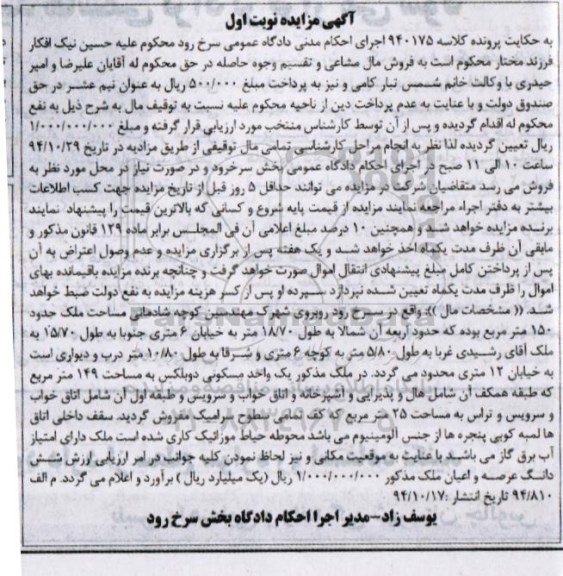 آگهی مزایده نوبت اول
به حکایت پرونده کلاسه ۹۴۰۱۷۵ اجرای احکام مدنی دادگاه عمومی سرخ رود محکوم علیه حسین نیک افکار
فرزند مختار محکوم است به فروش مال مشاعی و تقسیم وجوه حاصله در حق محکوم له آقایان علیرضا و امیر
حیدری با وکالت خانم شمس تبار کامی و نیز به پرداخت مبلغ ۵۰۰/۰۰۰ ریال به عنوان نیم عشر در حق
صندوق دولت و با عنایت به عدم پرداخت دین از ناحیه محکوم علیه نسبت به توقیف مال به شرح ذیل به نفع
محکوم له اقدام گردیده و پس از آن توسط کارشناس منتخب مورد ارزیابی قرار گرفته و مبلغ ۱/۰۰۰/۰۰۰/۰۰۰
ریال تعیین گردیده لذا نظر به انجام مراحل کارشناسی تمامی مال توقیفی از طریق مزادیه در تاریخ ۹۴/۱۰/۲۹
ساعت ۱۰ الی ۱۱ صبح در اجرای احکام دادگاه عمومی بخش سرخرود و در صورت نیاز در محل مورد نظر به
فروش می رسد متقاضیان شرکت در مزایده می توانند حداقل ۵ روز قبل از تاریخ مزایده جهت کسب اطلاعات
بیشتر به دفتر اجراء مراجعه نمایند مزایده از قیمت پایه شروع و کسانی که بالاترین قیمت را پیشنهاد نمایند
برنده مزایده خواهد شد و همچنین ۱۰ درصد مبلغ اعلامی آن فی المجلس برابر ماده ۱۲۹ قانون مذکور و
مابقی آن ظرف مدت یکماه اخذ خواهد شد و یک هفته پس از برگزاری مزایده و عدم وصول اعتراض به آن
پس از پرداختن کامل مبلغ پیشنهادی انتقال اموال صورت خواهد گرفت و چنانچه برنده مزایده باقیمانده بهای
اموال را ظرف مدت یکماه تعیین شده نپردازد سپرده او پس از کسر هزینه مزایده به نفع دولت ضبط خواهد
شد. (( مشخصات مال )): واقع در سرخ رود روبروی شهرک مهندسین کوچه شادمانی مساحت ملک حدود
۱۵۰ متر مربع بوده که حدود اربعه آن شمالا به طول ۱۸/۷۰ متر به خیابان ۶ متری جنوبا به طول ۱۵/۷۰ به
ملک آقای رشیدی غربا به طول ۵/۸۰ متر به کوچه ۶ متری و شرقا به طول ۱۰/۸۰ متر درب و دیواری است
به خیابان ۱۲ متری محدود می گردد. در ملک مذکور یک واحد مسکونی دوبلکس به مساحت ۱۴۹ متر مربع
که طبقه همکف آن شامل هال و پذیرایی و آشپزخانه و اتاق خواب و سرویس و طبقه اول آن شامل اتاق خواب
و سرویس و تراس به مساحت ۲۵ متر مربع که کف تمامی سطوح سرامیک مفروش گردید. سقف داخلی اتاق
ها لمبه کوبی پنجره ها از جنس آلومینیوم می باشد محوطه حیاط موزائیک کاری شده است ملک دارای امتیاز
آب برق گاز می باشید با عنایت به موقعیت مکانی و نیز لحاظ نمودن کلیه جوانب در امر ارزیابی ارزش شش
دانگ عرصه و اعیان ملک مذکور ۱/۰۰۰/۰۰۰/۰۰۰ ریال (یک میلیارد ریال ) برآورد و اعلام می گردد. م الف
۹۴/۸۱۰ تاریخ انتشار :۹۴/۱۰/۱۷
یوسف زاد-مدیر اجرا احکام دادگاه بخش سرخ رود